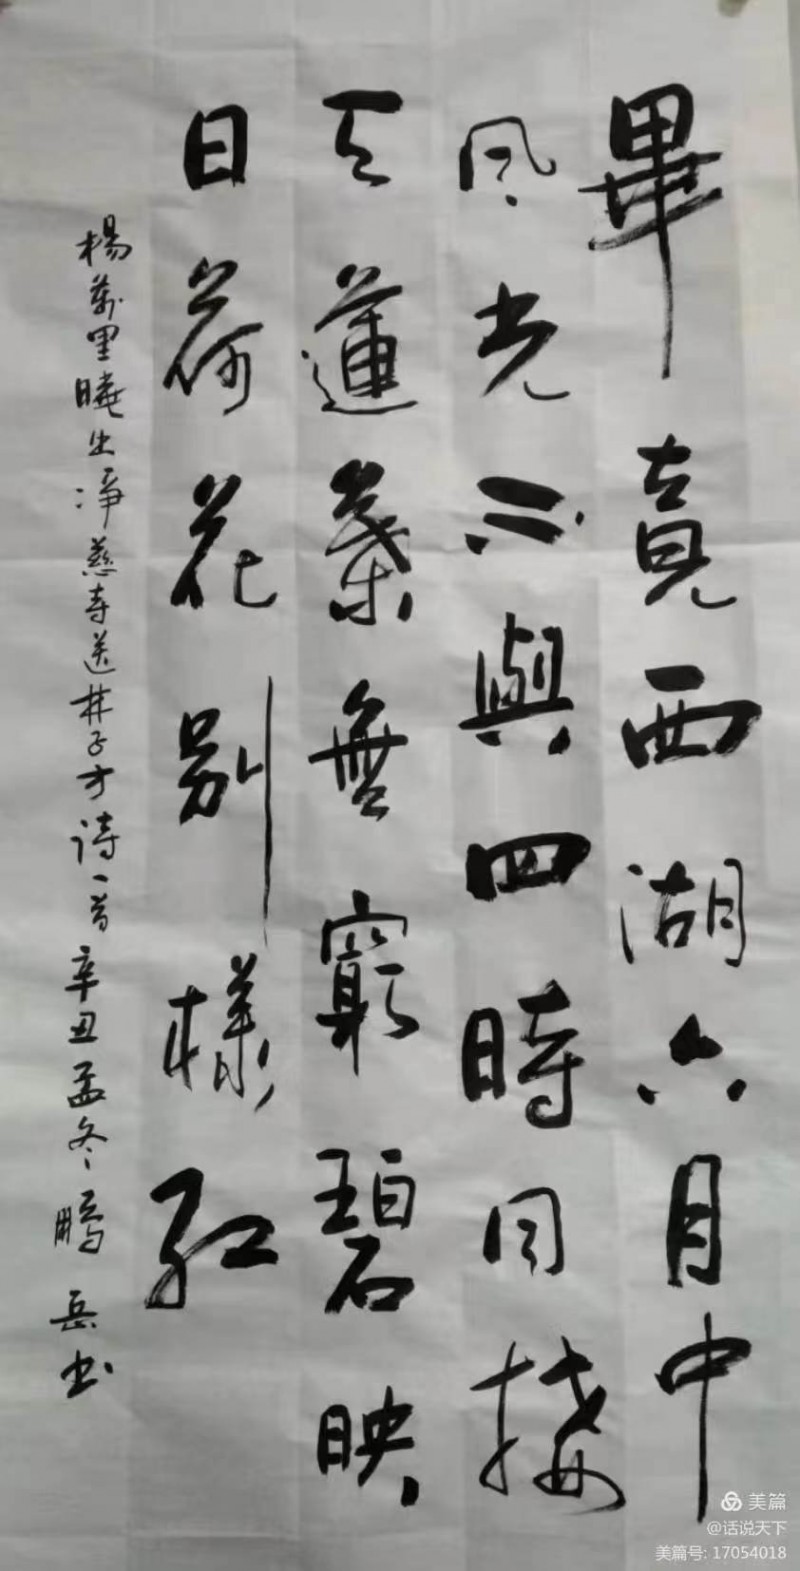 畢竟西湖六月中
風光不與四時同接
天蓮葉無窮碧映
日荷花別樣紅
楊萬里曉出淨慈寺送林子方诗一首辛丑孟冬鵬岳书
美篇
@话说天下
美篇号: 17054018